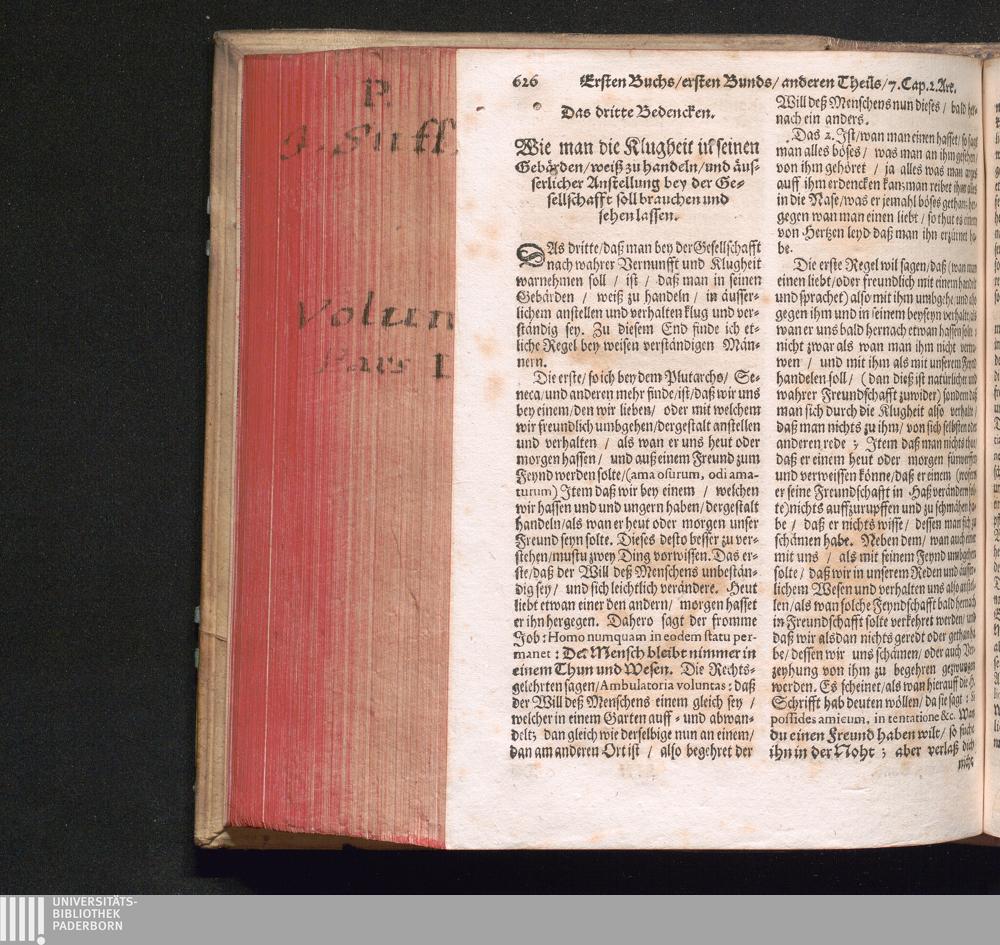 P.
J. Suff.
Volum
Pars I
626 Ersten Buchs/ersten Bunds/anderen Theils/7.Cap.2.Art.
Das dritte Bedencken.
Wie man die Klugheit in seinen
Gebärden/weiß zu handeln/und äus-
serlicher Anstellung bey der Ge-
sellschafft soll brauchen und
sehen lassen.
DAs dritte/daß man bey der Gesellschafft
nach wahrer Vernunfft und Klugheit
warnehmen soll / ist / daß man in seinen
Gebärden / weiß zu handeln / in äusser-
lichem anstellen und verhalten klug und ver-
ständig sey. Zu diesem End finde ich et-
liche Regel bey weisen verständigen Män-
nern.
Die erste/so ich bey dem Plutarcho/ Se-
neca/und anderen mehr finde/ist/daß wir uns
bey einem/den wir lieben/ oder mit welchem
wir freundlich umbgehen/dergestalt anstellen
und verhalten / als wan er uns heut oder
morgen hassen / und auß einem Freund zum
Feynd werden solte/(ama osurum, odi ama-
turum) Item daß wir bey einem / welchen
wir hassen und und ungern haben/dergestalt
handeln/als wan er heut oder morgen unser
Freund seyn solte. Dieses desto besser zu ver-
stehen/mustu zwey Ding vorwissen. Das er-
ste/daß der Will deß Menschens unbestän-
dig sey/ und sich leichtlich verändere. Heut
liebt etwan einer den andern/ morgen hasset
er ihn hergegen. Dahero sagt der fromme
Job: Homo numquam in eodem statu per-
manet : Der Mensch bleibt nimmer in
einem Thun und Wesen. Die Rechts-
gelehrten sagen/Ambulatoria voluntas: daß
der Will deß Menschens einem gleich sey /
welcher in einem Garten auff- und abwan-
delt; dan gleich wie derselbige nun an einem/
dan am anderen Ort ist / also begehret der
Will deß Menschens nun dieses / bald her-
nach ein anders.
Das 2. Ist/wan man einen hasset/ so sagt
man alles böses / was man an ihm gesehen/
von ihm gehöret / ja alles was man
auff ihm erdencken kan; man reibet ihm alles
in die Nase/was er jemahl böses gethan; her-
gegen wan man einen liebt / so thut es einem
von Hertzen leyd daß man ihn erzürnet ha-
be.
Die erste Regel wil sagen/daß (wan man
einen liebt/oder freundlich mit einem handelt
und sprachet) also mit ihm umbgehe/und also
gegen ihm und in seinem beyseyn verhalt/als
wan er uns bald hernach etwan hassen solte;
nicht zwar als wan man ihm nicht
wen / und mit ihm als mit unserem Feynd
handelen soll / (dan dieß ist natürlicher und
wahrer Freundschafft zuwider) sondern daß
man sich durch die Klugheit also verhalte/
daß man nichts zu ihm/ von sich selbsten oder
anderen rede ; Item daß man nichts thue/
daß er einem heut oder morgen fürwerffen
und verweissen könne/daß er einem (wofern
er seine Freundschafft in Haß verändern sol-
te) nichts auffzurupffen und zu schmähen ha-
be / daß er nichts wisse / dessen man sich zu
schämen habe. Neben dem/ wan auch einer
mit uns / als mit seinem Feynd umbgehen
solte / daß wir in unserem Reden und äusser-
lichem Wesen und verhalten uns also anstel-
len/als wan solche Feyndschafft bald hernach
in Freundschafft solte verkehret werden/ und
daß wir alsdan nichts geredt oder gethan ha-
be/dessen wir uns schämen/oder auch Ver-
zeyhung von ihm zu begehren gezwungen
werden. Es scheinet/als wan hierauff die H.
Schrifft hab deuten wöllen/da sie sagt : Si
possides amicum, in tentatione &c. Wan
du einen Freund haben wilt/ so suche
ihn in der Noht ; aber verlaß dich
UNIVERSITÄTS-
BIBLIOTHEK
PADERBORN